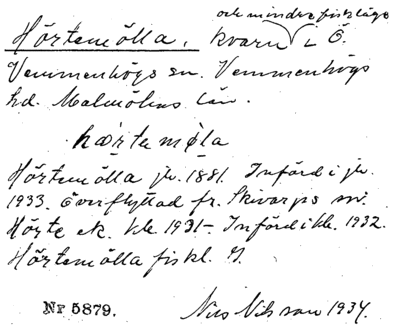 och mindre fiskläge
Hörtemölla. kvarn i Ö.
Vemmenhögs sn. Vemmenhögs
hd. Malmöhus län.
hœrte møla
Hörtemölla jr. 1881. Införd i jr.
1933. överflyttad fr. Skivarps sn.
Hörte ek. kle 1931- Införd i kle. 1932.
Hörtemölla fiskl. G.
Nr 5879. Nils Nilsson 1934.